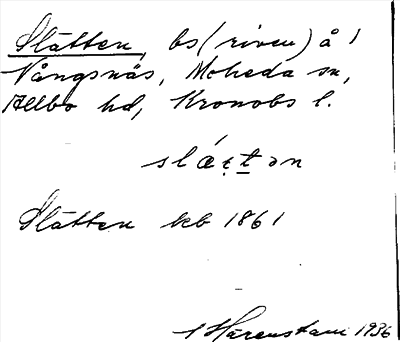 Slätten, bs (riven) å 1
Vångsnäs, Moheda sn,
Allbo hd, Kronobs l.
Slätten kb 1861
Härenstam 1936